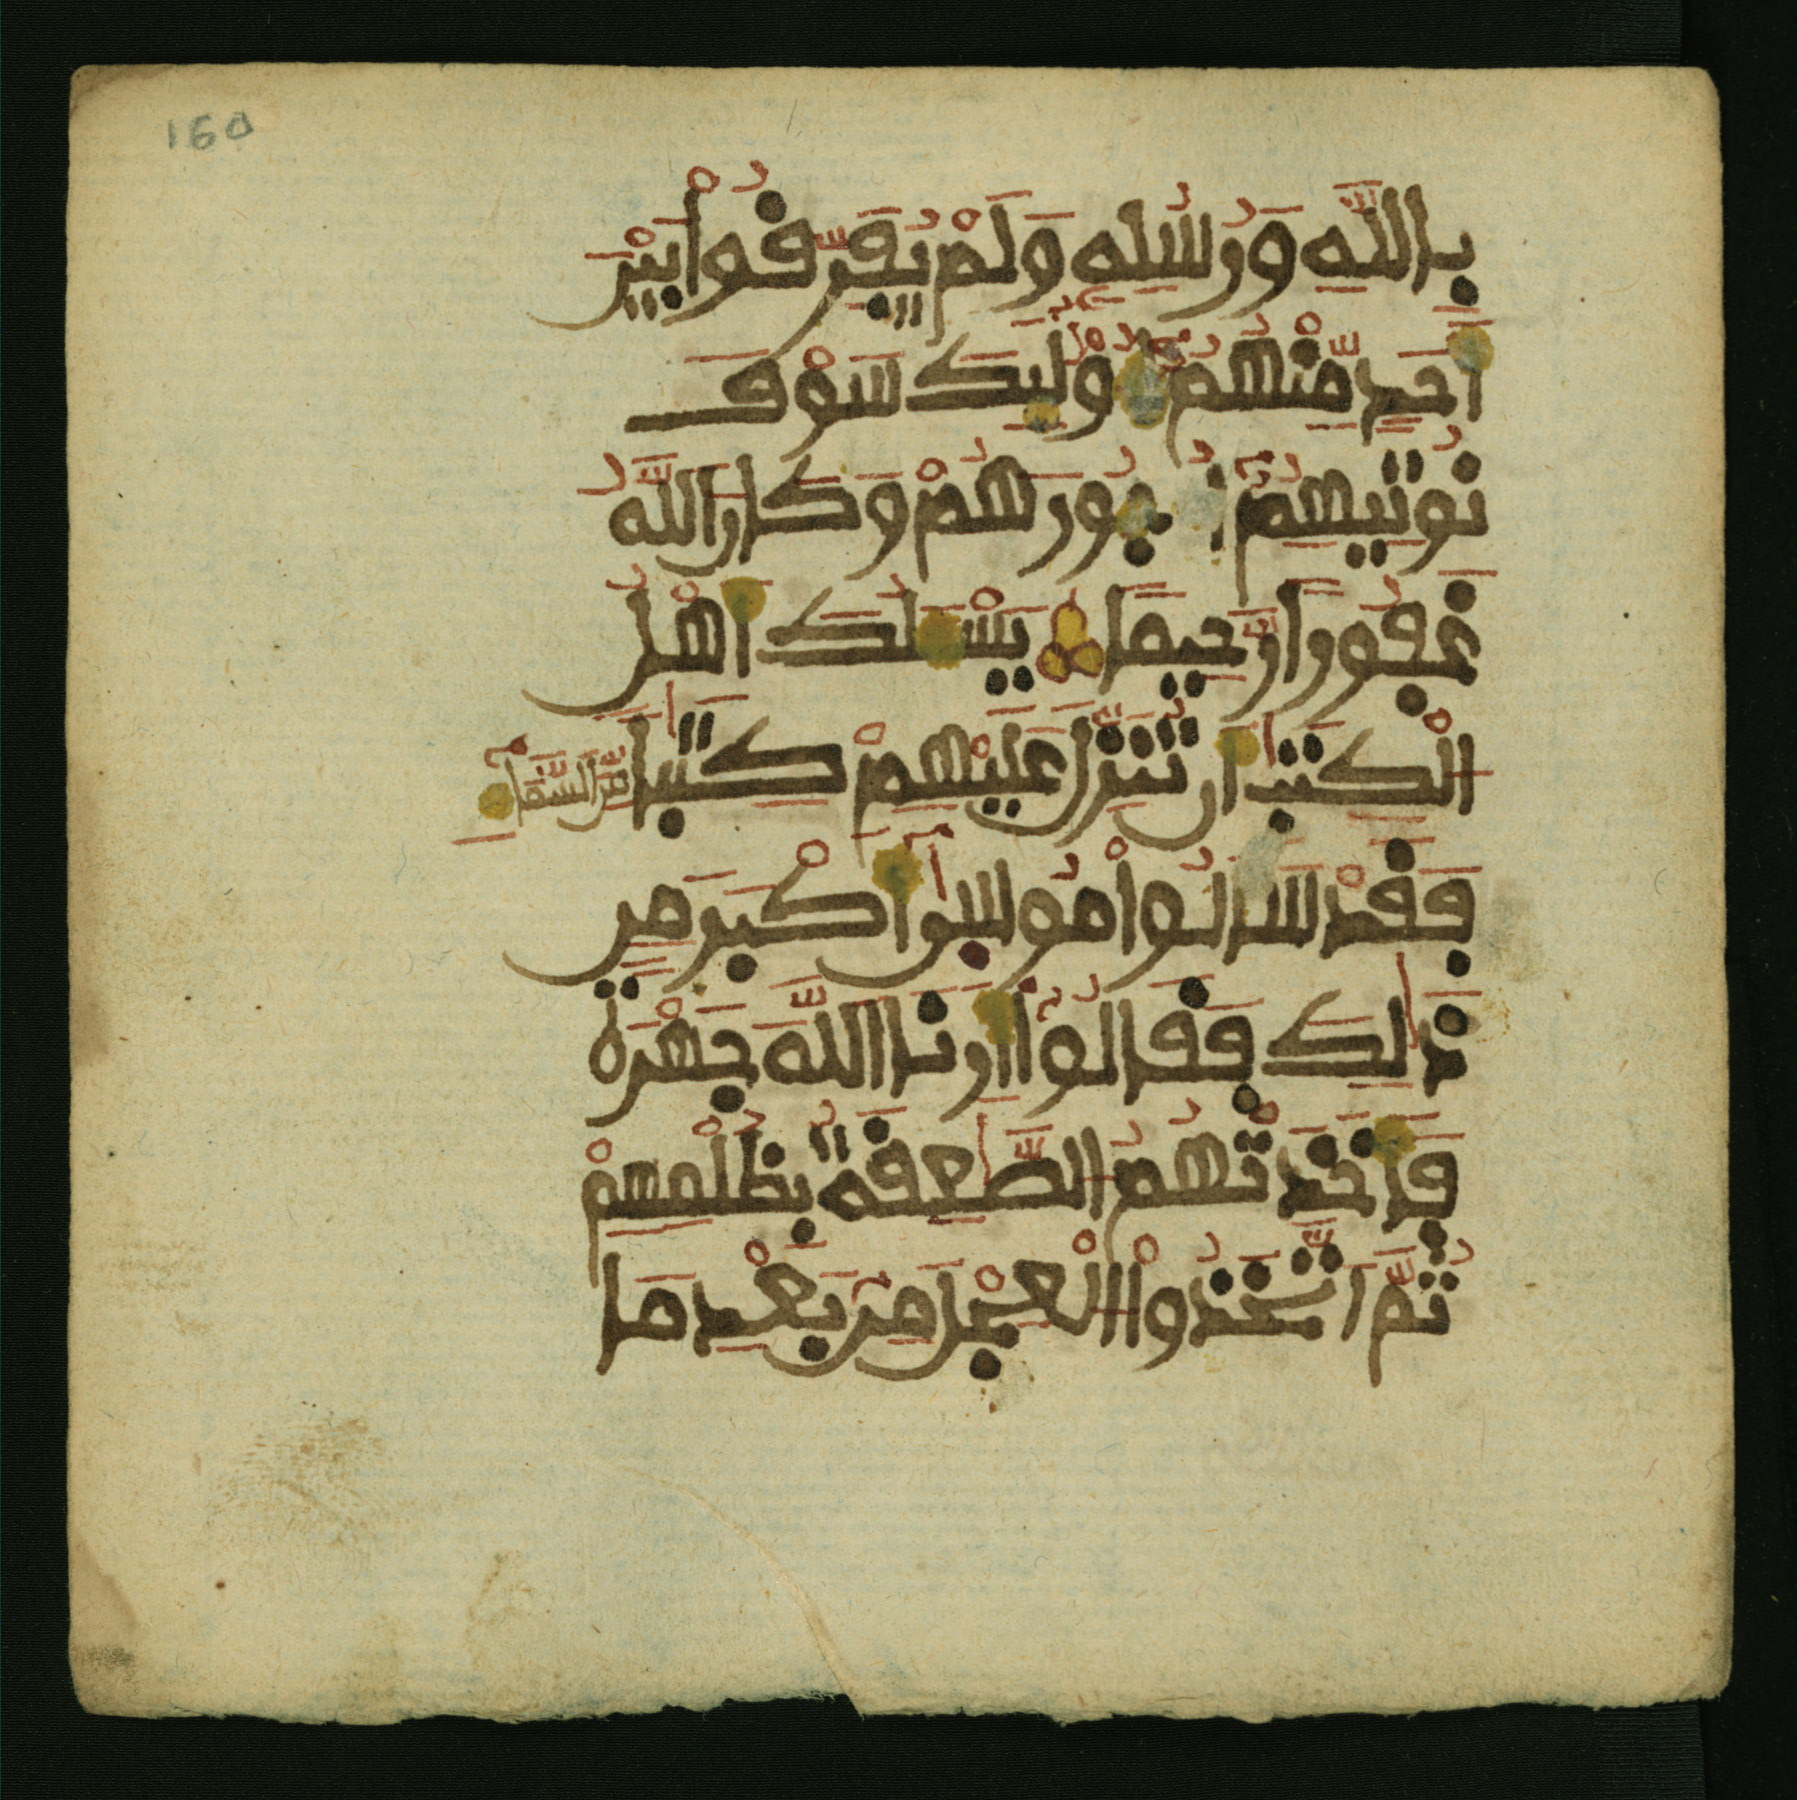 160
بِاللَّهِ وَرُسُلِهِ وَلَمْ يُفَرِّقُواْ بَيْنَ
أَحَدٍ مِّنْهُمُۥٓ أُوْلَٰٓئِكَ سَوْفَ
نُوتِيهِمُۥٓ أُجُورَهُمْ وَكَانَ اللَّهُ
غَفُوراً رَّحِيماً يَسْـَٔلُكَ أَهْلُ
الْكِتَٰبِ أَن تُنَزِّلَ عَلَيْهِمْ كِتَٰباً مِّنَ السَّمَآءِ
فَقَدْ سَأَلُواْ مُوسَىٰٓ أَكْبَرَ مِن
ذَٰلِكَ فَقَالُوٓاْ أَرِنَا اللَّهَ جَهْرَةً
فَأَخَذَتْهُمُ الصَّٰعِقَةُ بِظُلْمِهِمْ
ثُمَّ اتَّخَذُواْ الْعِجْلَ مِنۢ بَعْدِ مَا